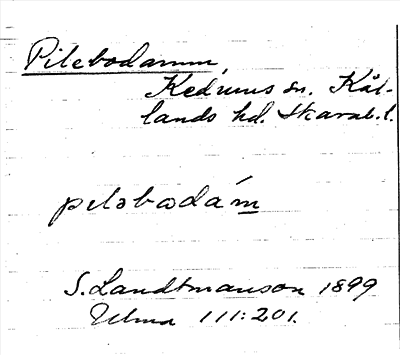 Pilebodamm,
Kedums sn. Kål-
lands hd. Skarab.l.
pelobodám
S. Landtmanson 1899
Ulma 111:201.